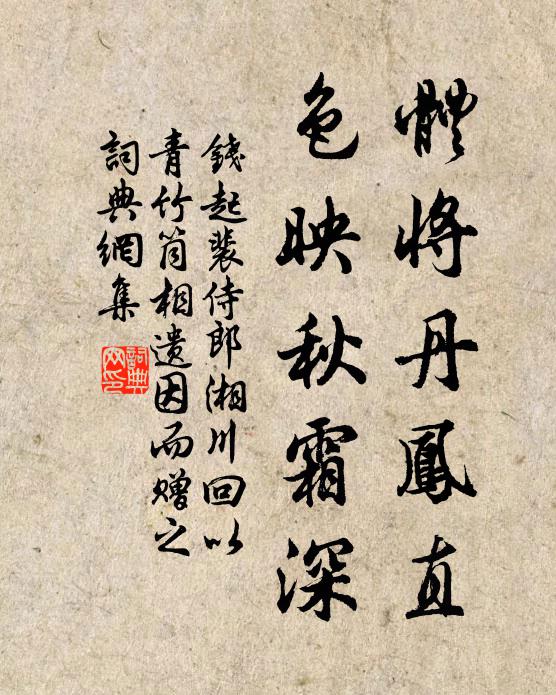 體將丹鳳直
色映秋霜深
錢起裴侍郎湘川回以
青竹筒相遗因而赠之
詞典網集
詞典
网印